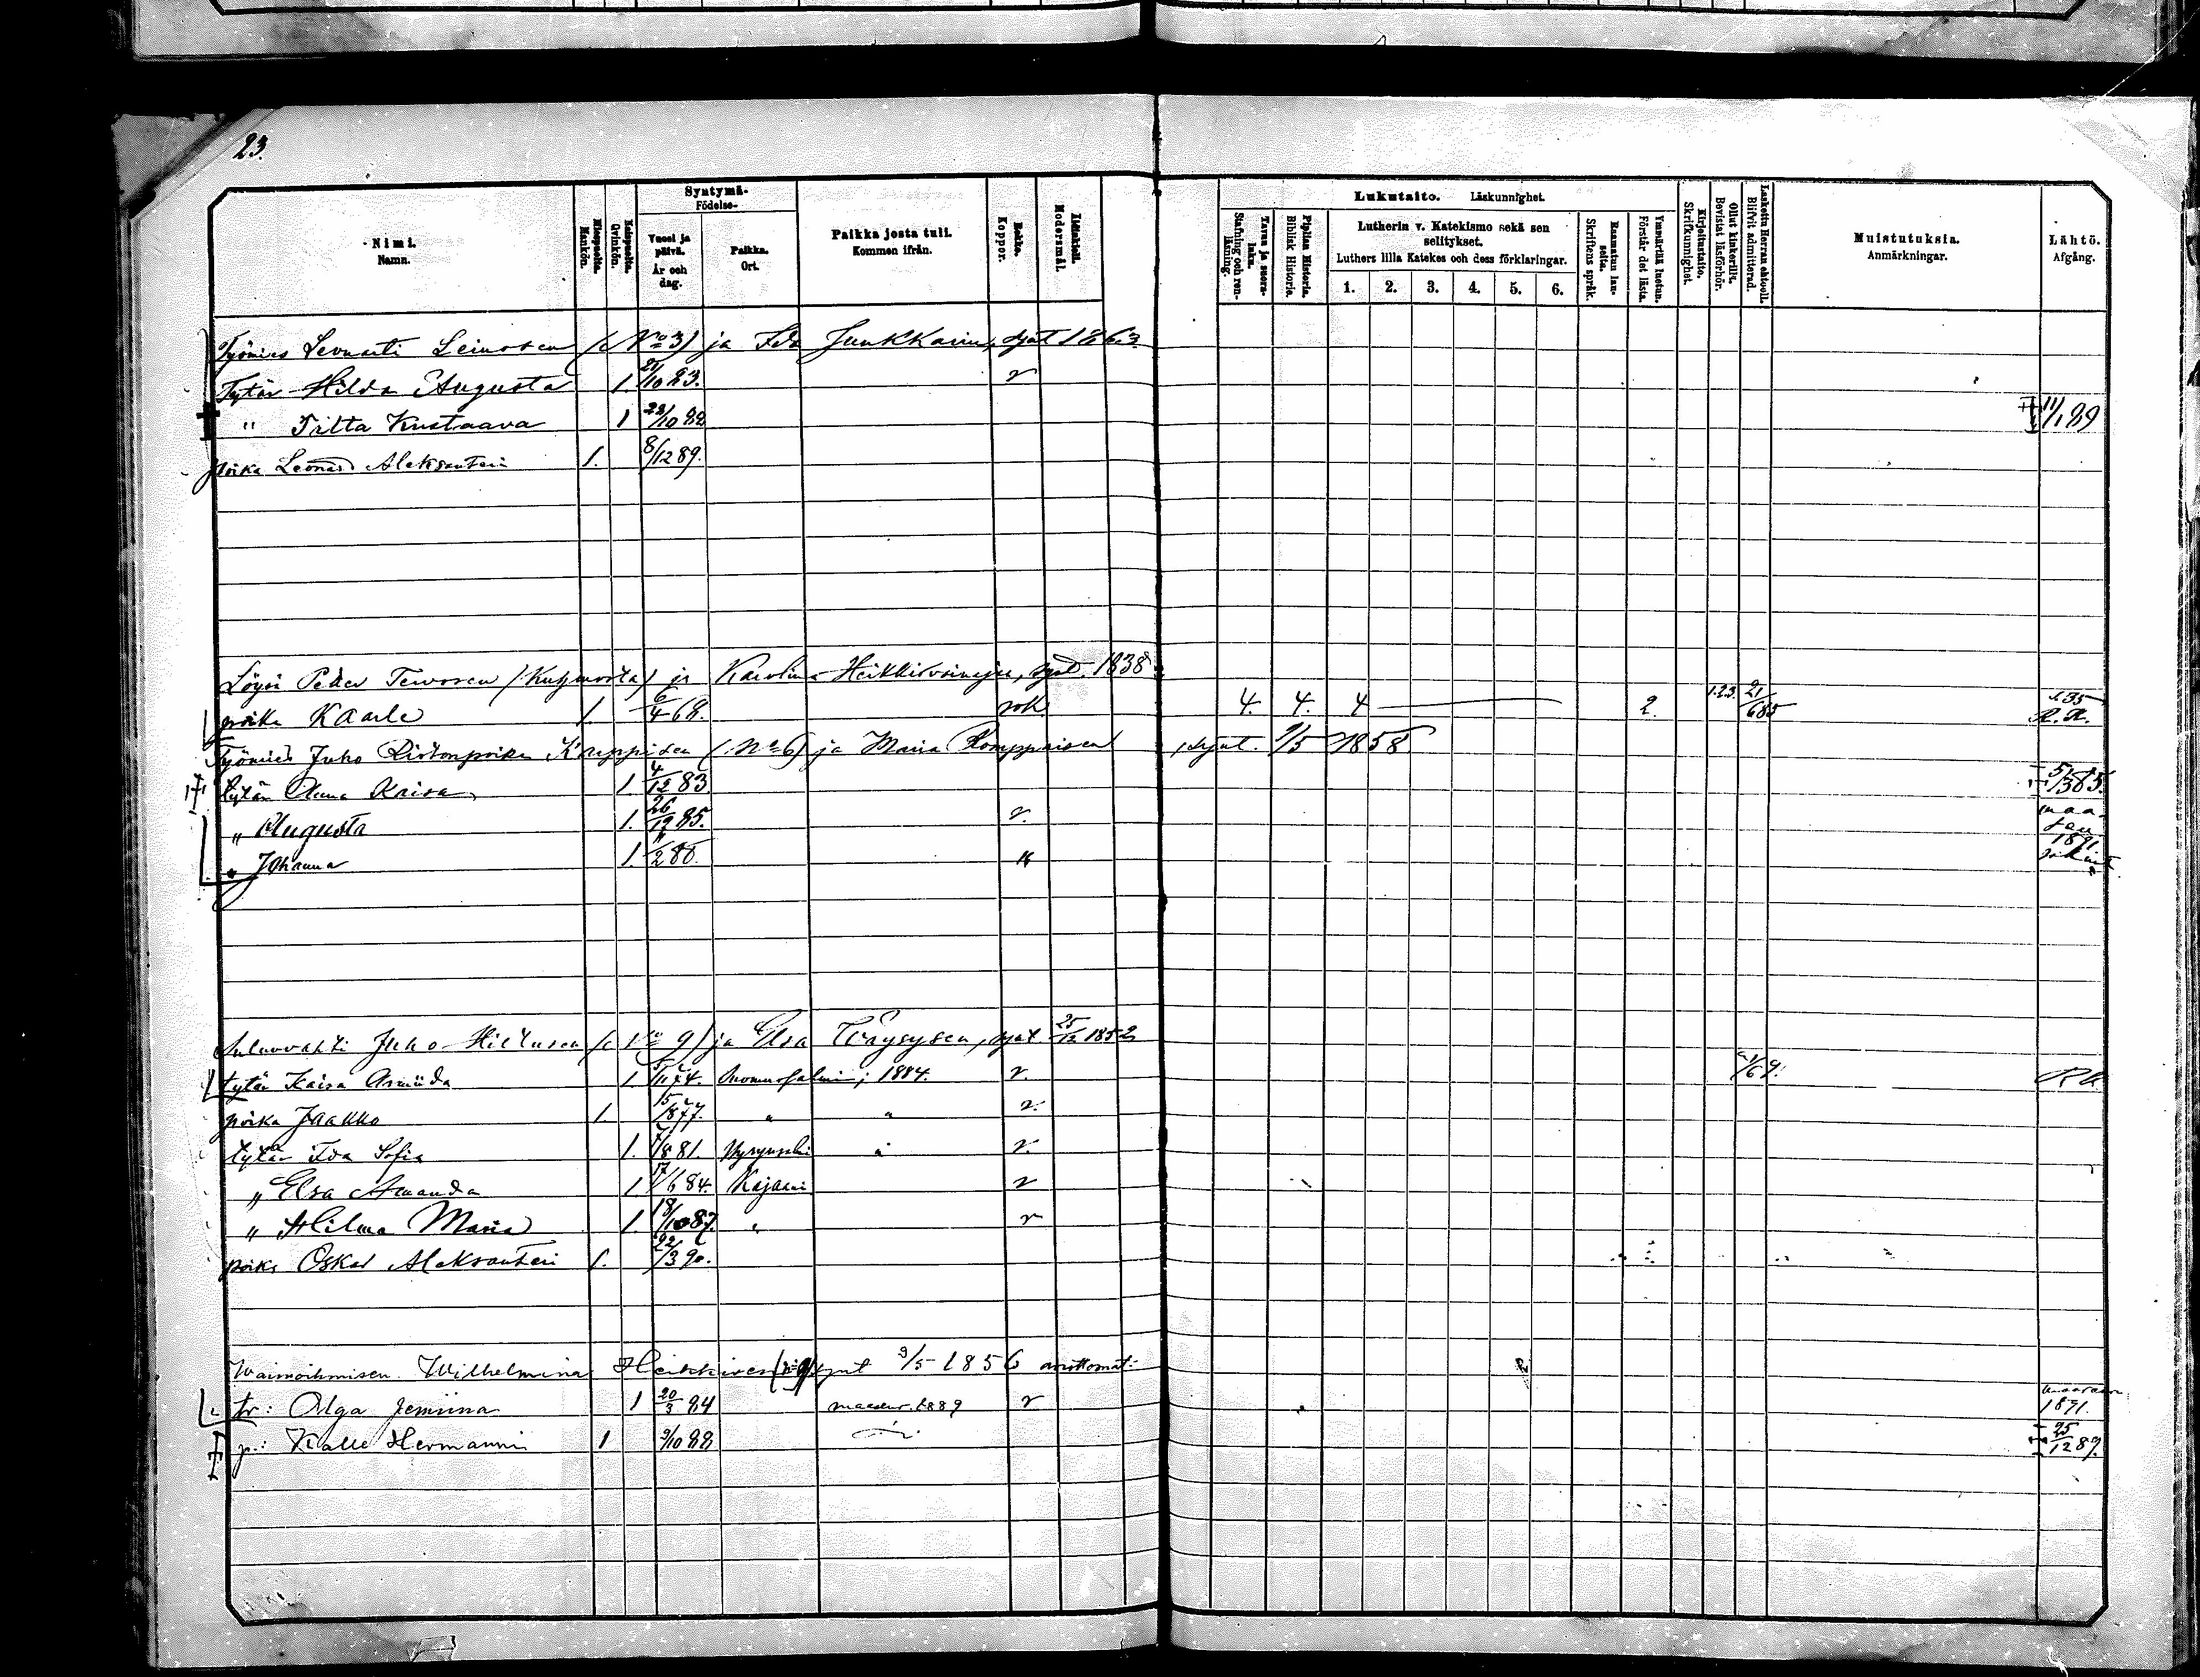 23.
Nimi.
Namn.
Miespuolia.
Mankön.
Qvinkön.
Syntymä-
Födelse-
Vuosi ja päivä.
År och dag.
Paikka.
Ort.
Paikka josta tuli.
Kommen ifrån.
Rokko.
Koppor.
Modersmål.
Lukutaito. Läskunnighet.
Tavaa ja suora-luku.
Stafning och ren-läsning.
Piplian Historia.
Biblisk Historie.
Lutherin v. Katekismo sekä sen selitykset.
Luthers lilla Katekes och dess förklaringar.
1. 2. 3. 4. 5. 6.
Raamatun lauseita.
Skriftens språk.
Ymmärtää luetun.
Förstår det lästa.
Kirjoitustaito.
Skrifkunnighet.
Ollut kinkerillä.
Bevistat läsförhör.
Laskettu Herran ehtooll.
Blifvit admitterad.
Muistutuksia.
Anmärkningar.
Lähtö.
Afgång.
Työmies Leonarti Leinosen (No 3) ja Ida Junkkarin, synt 1863
Tytär Hilda Augusta 1. 21/10 83. r
" Tilta Kustaava 1 22/10 88 11/1 89
poika Leonard Aleksanteri 1. 8/12 89.
Löysi Petter Tervosen ja Karolina Heikkisvainajan, synt. 1838
poika Kaarle 1. 6/4 68. rok 4. 4. 4 2. 1.2.3. 21/6 85 R.K.
Työmies Juho Ristonpoika Karppisen (No 6) ja Maria Komppaisen, synt. 9/5 1858
tytär Anna Kaisa 1. 4/12 83 5/5 85.
" Augusta 1. 26/12 85. r.
" Johanna 1. 11/2 88. " 1891
Juho Hiltusen (No 9) ja Elsa Wäyrysen, synt 25/12 1852
tytär Kaisa 1. 5/11 74. Suomussalmi; 1884. r. RK
poika Jaakko 1. 15/8 77. " " r.
tytär Ida Sofia 1. 7/8 81. " r.
" Elsa Amanda 1 17/6 84. Kajaani r
" Hilma Maria 1. 18/10 87. " r
poika Oskar Aleksanteri 1. 22/3 90.
Waimoihmisen Wilhelmina Heikkisen synt 9/5 1856 aviottomat:
tr: Olga Jemiina 1 20/3 84 1889 r 1891.
p.: Kalle Hermanni 1 9/10 88 25/12 89.